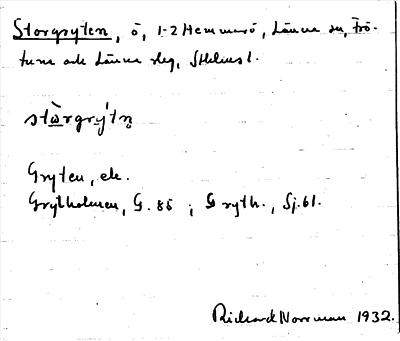 Storgryten, ö, 1-2 Hemmarö, Länna sn, Frö-
tuna och Länna slg, Sthlms l.
stɷ̀rgrý'tn̥
Gryten, ek.
Grytholmen, G. 85 ; Gryth., Sj. 61.
Richard Norrman 1932.